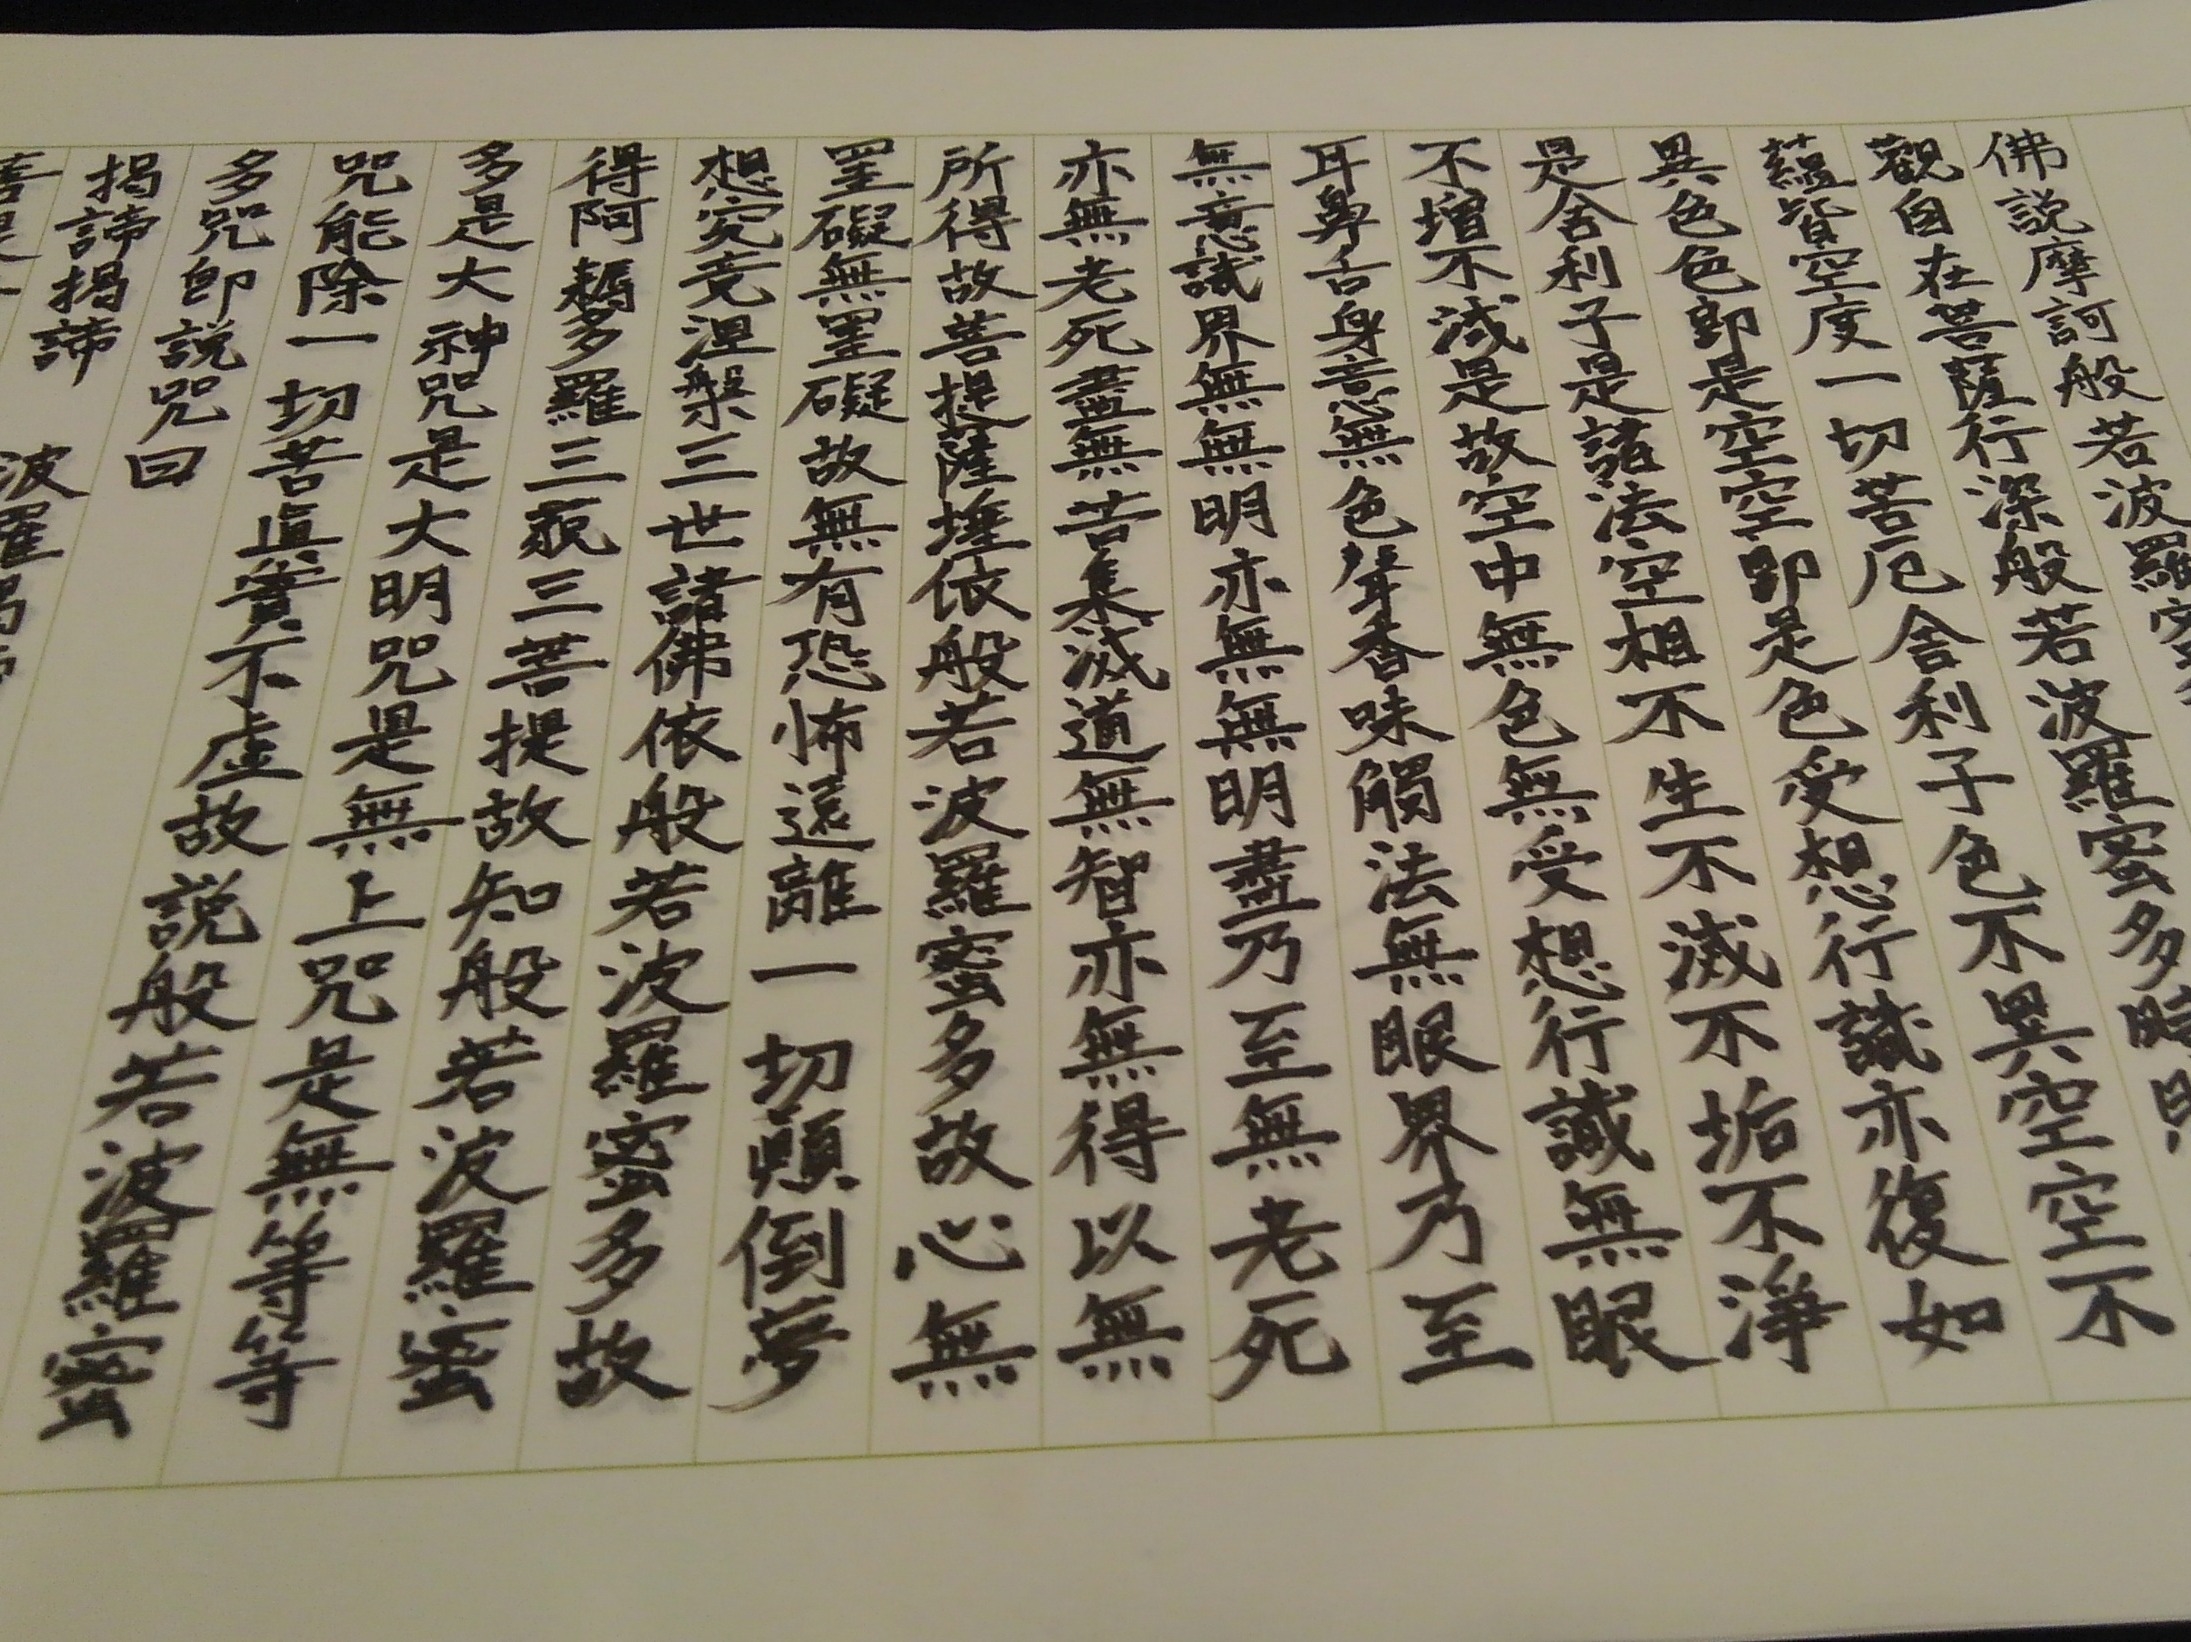 佛説摩訶般若波羅蜜
觀自在菩薩行深般若波羅蜜多時
蘊皆空度一切苦厄舎利子色不異空空不
異色色即是空空即是色受想行識亦復如
是舎利子是諸法空相不生不滅不垢不淨
不增不滅是故空中無色無受想行識無眼
耳鼻舌身意無色聲香味觸法無眼界乃至
無意識界無無明亦無無明盡乃至無老死
亦無老死盡無苦集滅道無智亦無得以無
所得故菩提薩埵依般若波羅蜜多故心無
罣礙無罣礙故無有恐怖遠離一切顛倒夢
想究竟涅槃三世諸佛依般若波羅蜜多故
得阿耨多羅三藐三菩提故知般若波羅蜜
多是大神咒是大明咒是無上咒是無等等
咒能除一切苦眞實不虚故説般若波羅蜜
多咒即説咒曰
揭諦揭諦 波羅揭